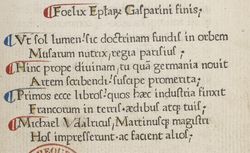 Foelix Eptaꝝ Gasparini finis;
Ut sol lumen: sic doctrinam fundis in orbem
Musarum nutrix, regia parisius;
Hinc prope diuinam, tu quã germania nouit
Artem scribendi: suscipe promerita;
Primos ecce libros: quos hæc industria finxit
Francorum in terris. ædibus atq; tuis;
Michael Vdalricus, Martinusq; magistri
Hos impresserunt. ac facient alios;